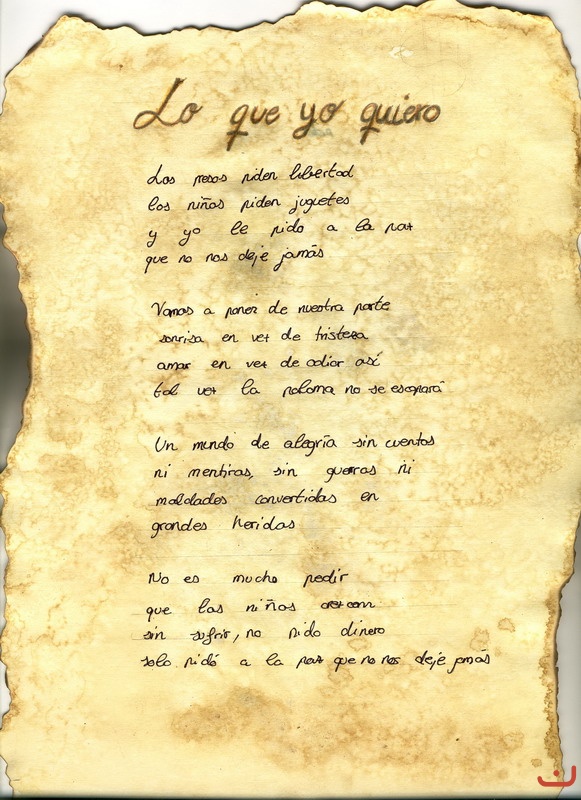 Lo que yo quiero
Los presos piden libertad
los niños piden juguetes
y yo le pido a la paz
que no nos deje jamás
Vamos a poner de nuestra parte
sonrisa en vez de tristeza
amar en vez de odiar así
tal vez la paloma no se escapará
Un mundo de alegría sin cuentos
ni mentiras, sin guerras ni
maldades convertidas en
grandes heridas
No es mucho pedir
que las niñas crezcan
sin sufrir, no pido dinero
solo pido a la paz que no nos deje jamás